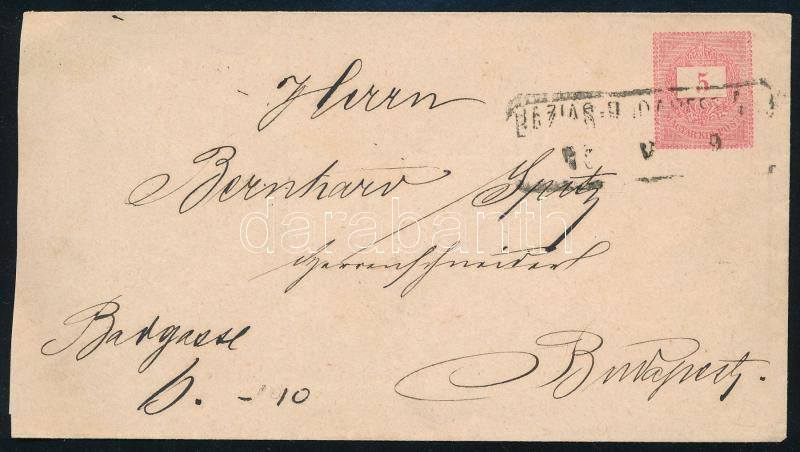 5
BÁZIÁS-BUDAPEST
Herrn
Bernhard Spitz
Herrenschneider
Badgasse
6. - 10
Budapest.
darabanth